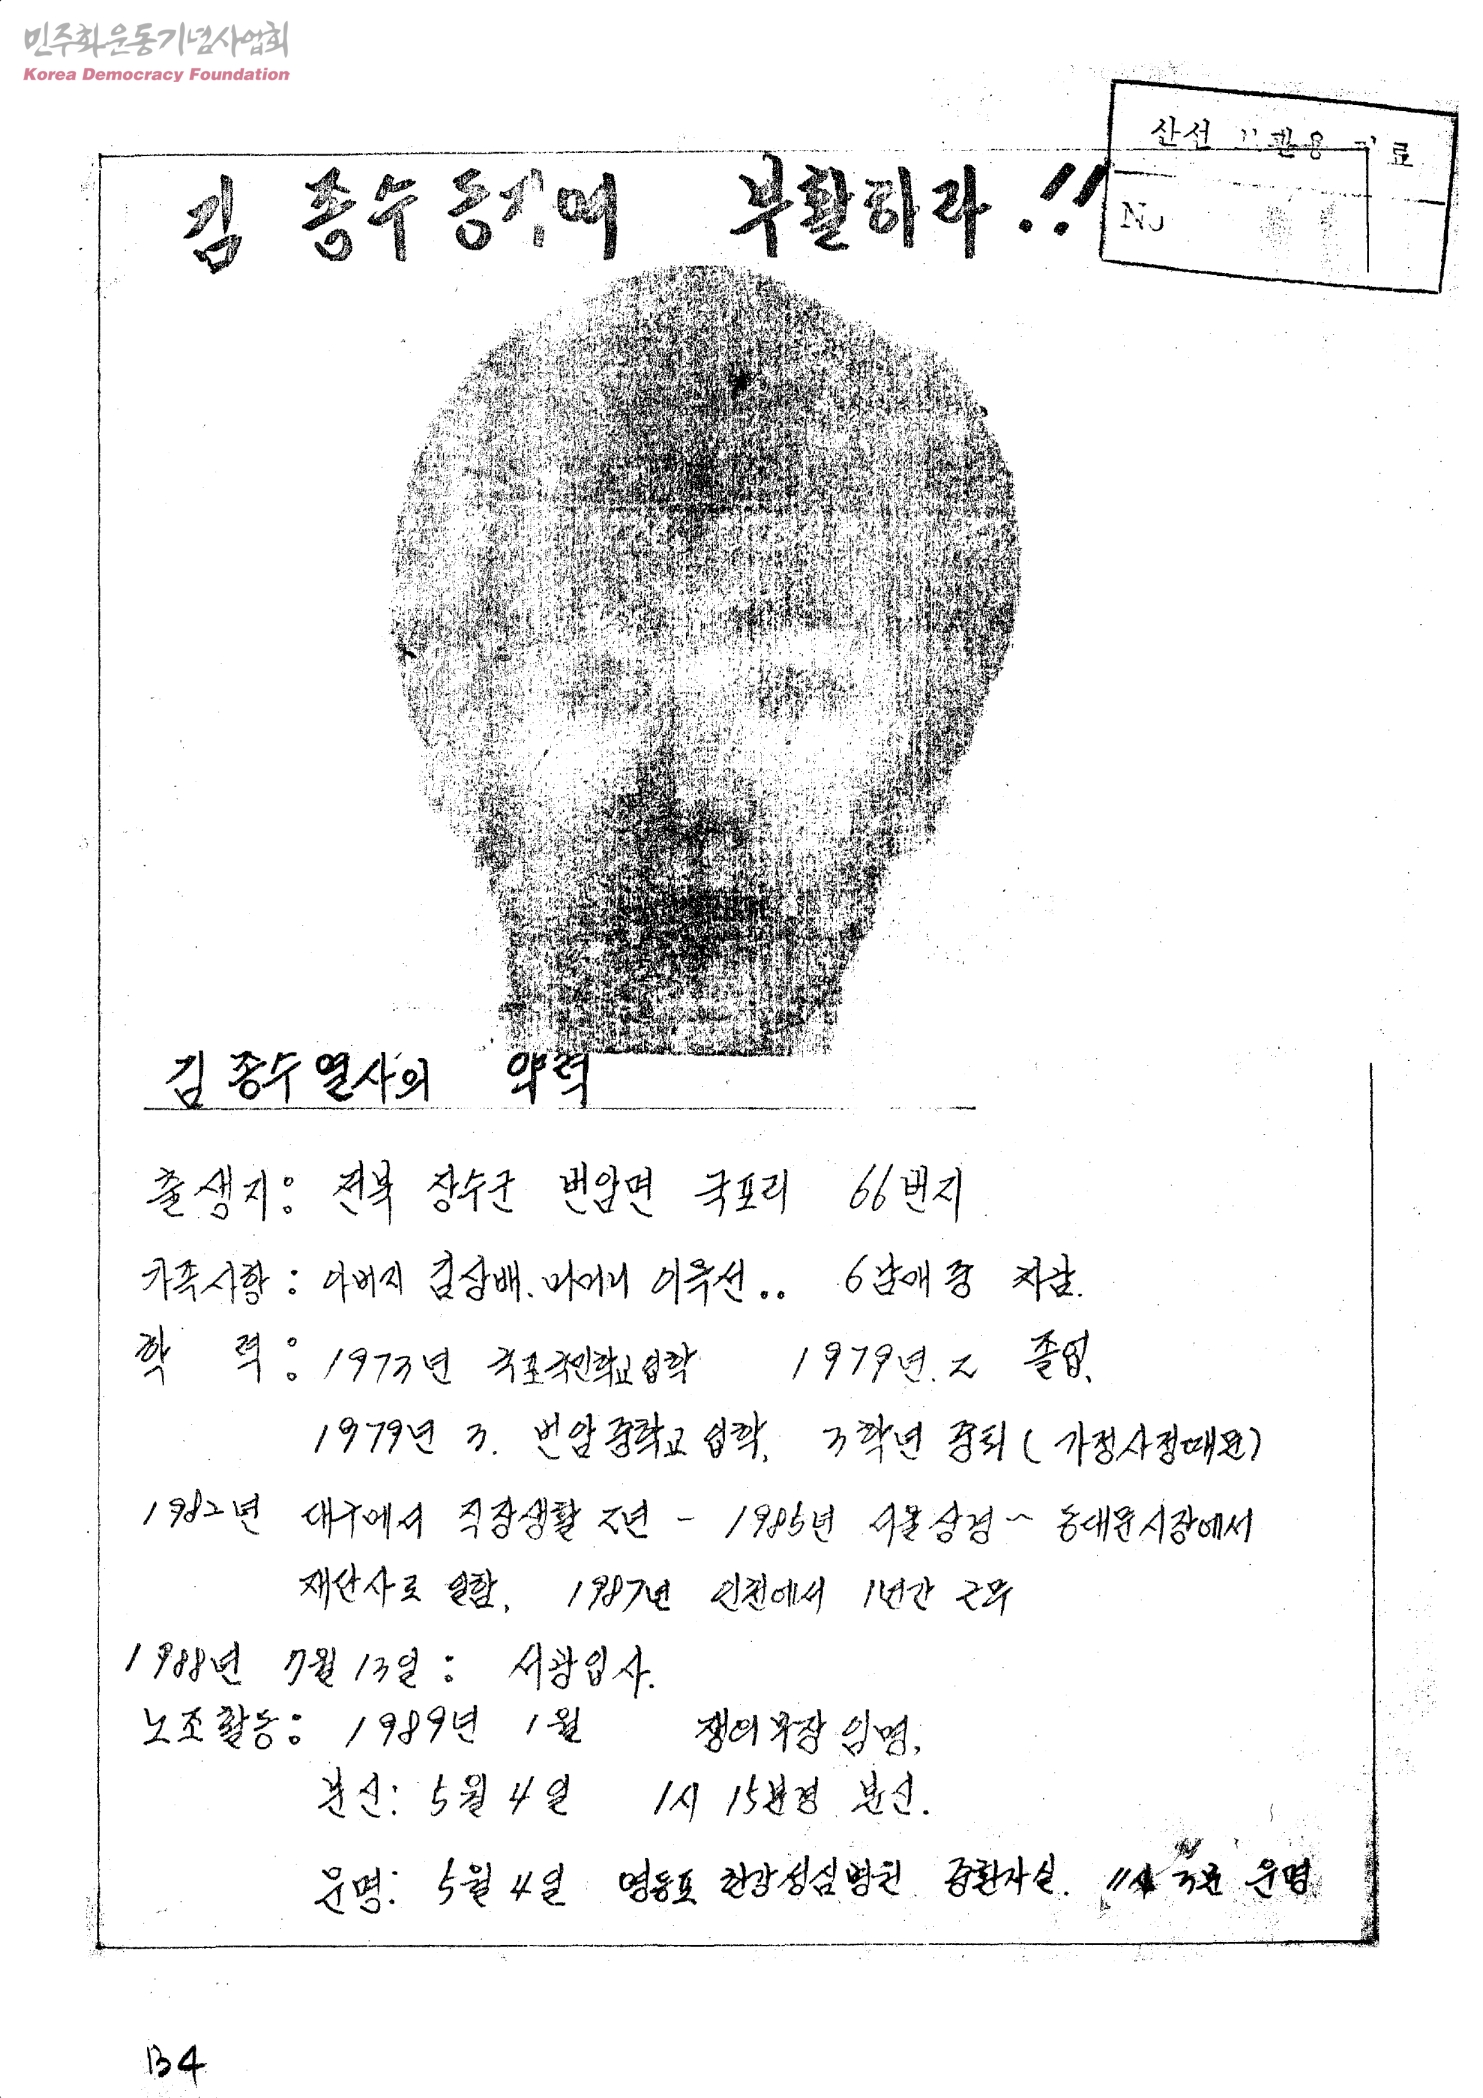 민주화운동기념사업회
Korea Democracy Foundation
산선 기관용 자료
No
김 종수 동지여 부활하라.!!
김종수 열사의 약력
출생지: 전북 장수군 번암면 국포리 66번지
가족사항: 아버지 김상배. 어머니 이옥선.. 6남매중 차남.
학 력: 1973년 국포국민학교 입학 1979년.2 졸업.
1979년 3. 번암중학교 입학, 3학년 중퇴 (가정사정때문)
1982년 대구에서 직장생활 2년 - 1985년 서울상경 ~ 동대문시장에서
재산사로 일함. 1987년 인천에서 1년간 근무
1988년 7월 13일: 서광입사.
노조활동: 1989년 1월 쟁의부장 임명.
분신: 5월 4일 1시 15분경 분신.
운명: 5월 4일 영등포 한강성심병원 중환자실. 11시 3분 운명
B4